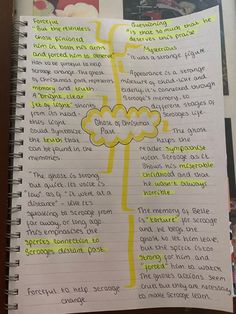 Forceful
"But the relentless
Ghost pinioned
him in both his arms
and forced him to observe
Has to be forceful to help
Scrooge change. The ghost
of Christmas past represents
memory and truth
A "bright, clear
jet of light" shoots
from its head,
this light
could symbolise
the truth that
can be found in the
memories.
"The ghost is strong
but quiet. Its voice is
"low" as if "it were at a
distance" - like it's
speaking to Scrooge from
far away, or long ago.
This emphasises the
spirits connection to
Scrooges distant past.
Forceful to help Scrooge
change
Ghost of Christmas
Past
Questioning
"Is that so much that he
deserves this praise
Mysterious
"It was a strange figure
Appearance is a strange
mixture of child-like and
elderly, it's connected through
Scrooge's memory, to
different stages of
Scrooges life.
The ghost
helps the
reader sympathise
with Scrooge as it
shows his miserable
childhood and that
he wasn't always
horrible.
The memory of Belle
is "torture" for Scrooge
and he begs the
ghost to let him leave,
but the spirit is too
strong for him and
"forced" him to watch
The ghosts actions seem
cruel but they are necessary
to make Scrooge learn.